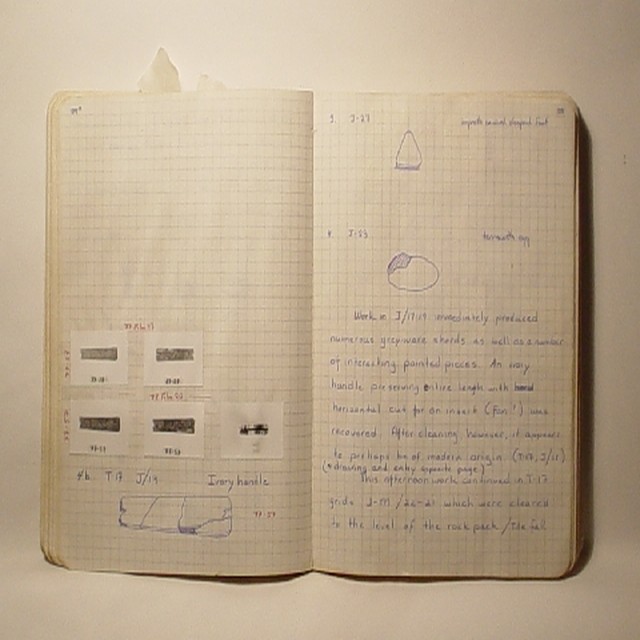 Ivory handle
T17 J/19
77-57
3. J-27
shaped foot
4. J-23
Work in J/17:19 immediately produced
numerous greyware sherds as well as a number
of interesting painted pieces. An ivory
handle preserving entire length with
horizontal cut for an insert (Fan?) was
recovered. After cleaning however, it appears
to perhaps be of modern origin. (T.17, J/19)
(* drawing and entry opposite page)
This afternoon work continued in T.17
grids J-M / 20-21 which were cleared
to the level of the rock pack /